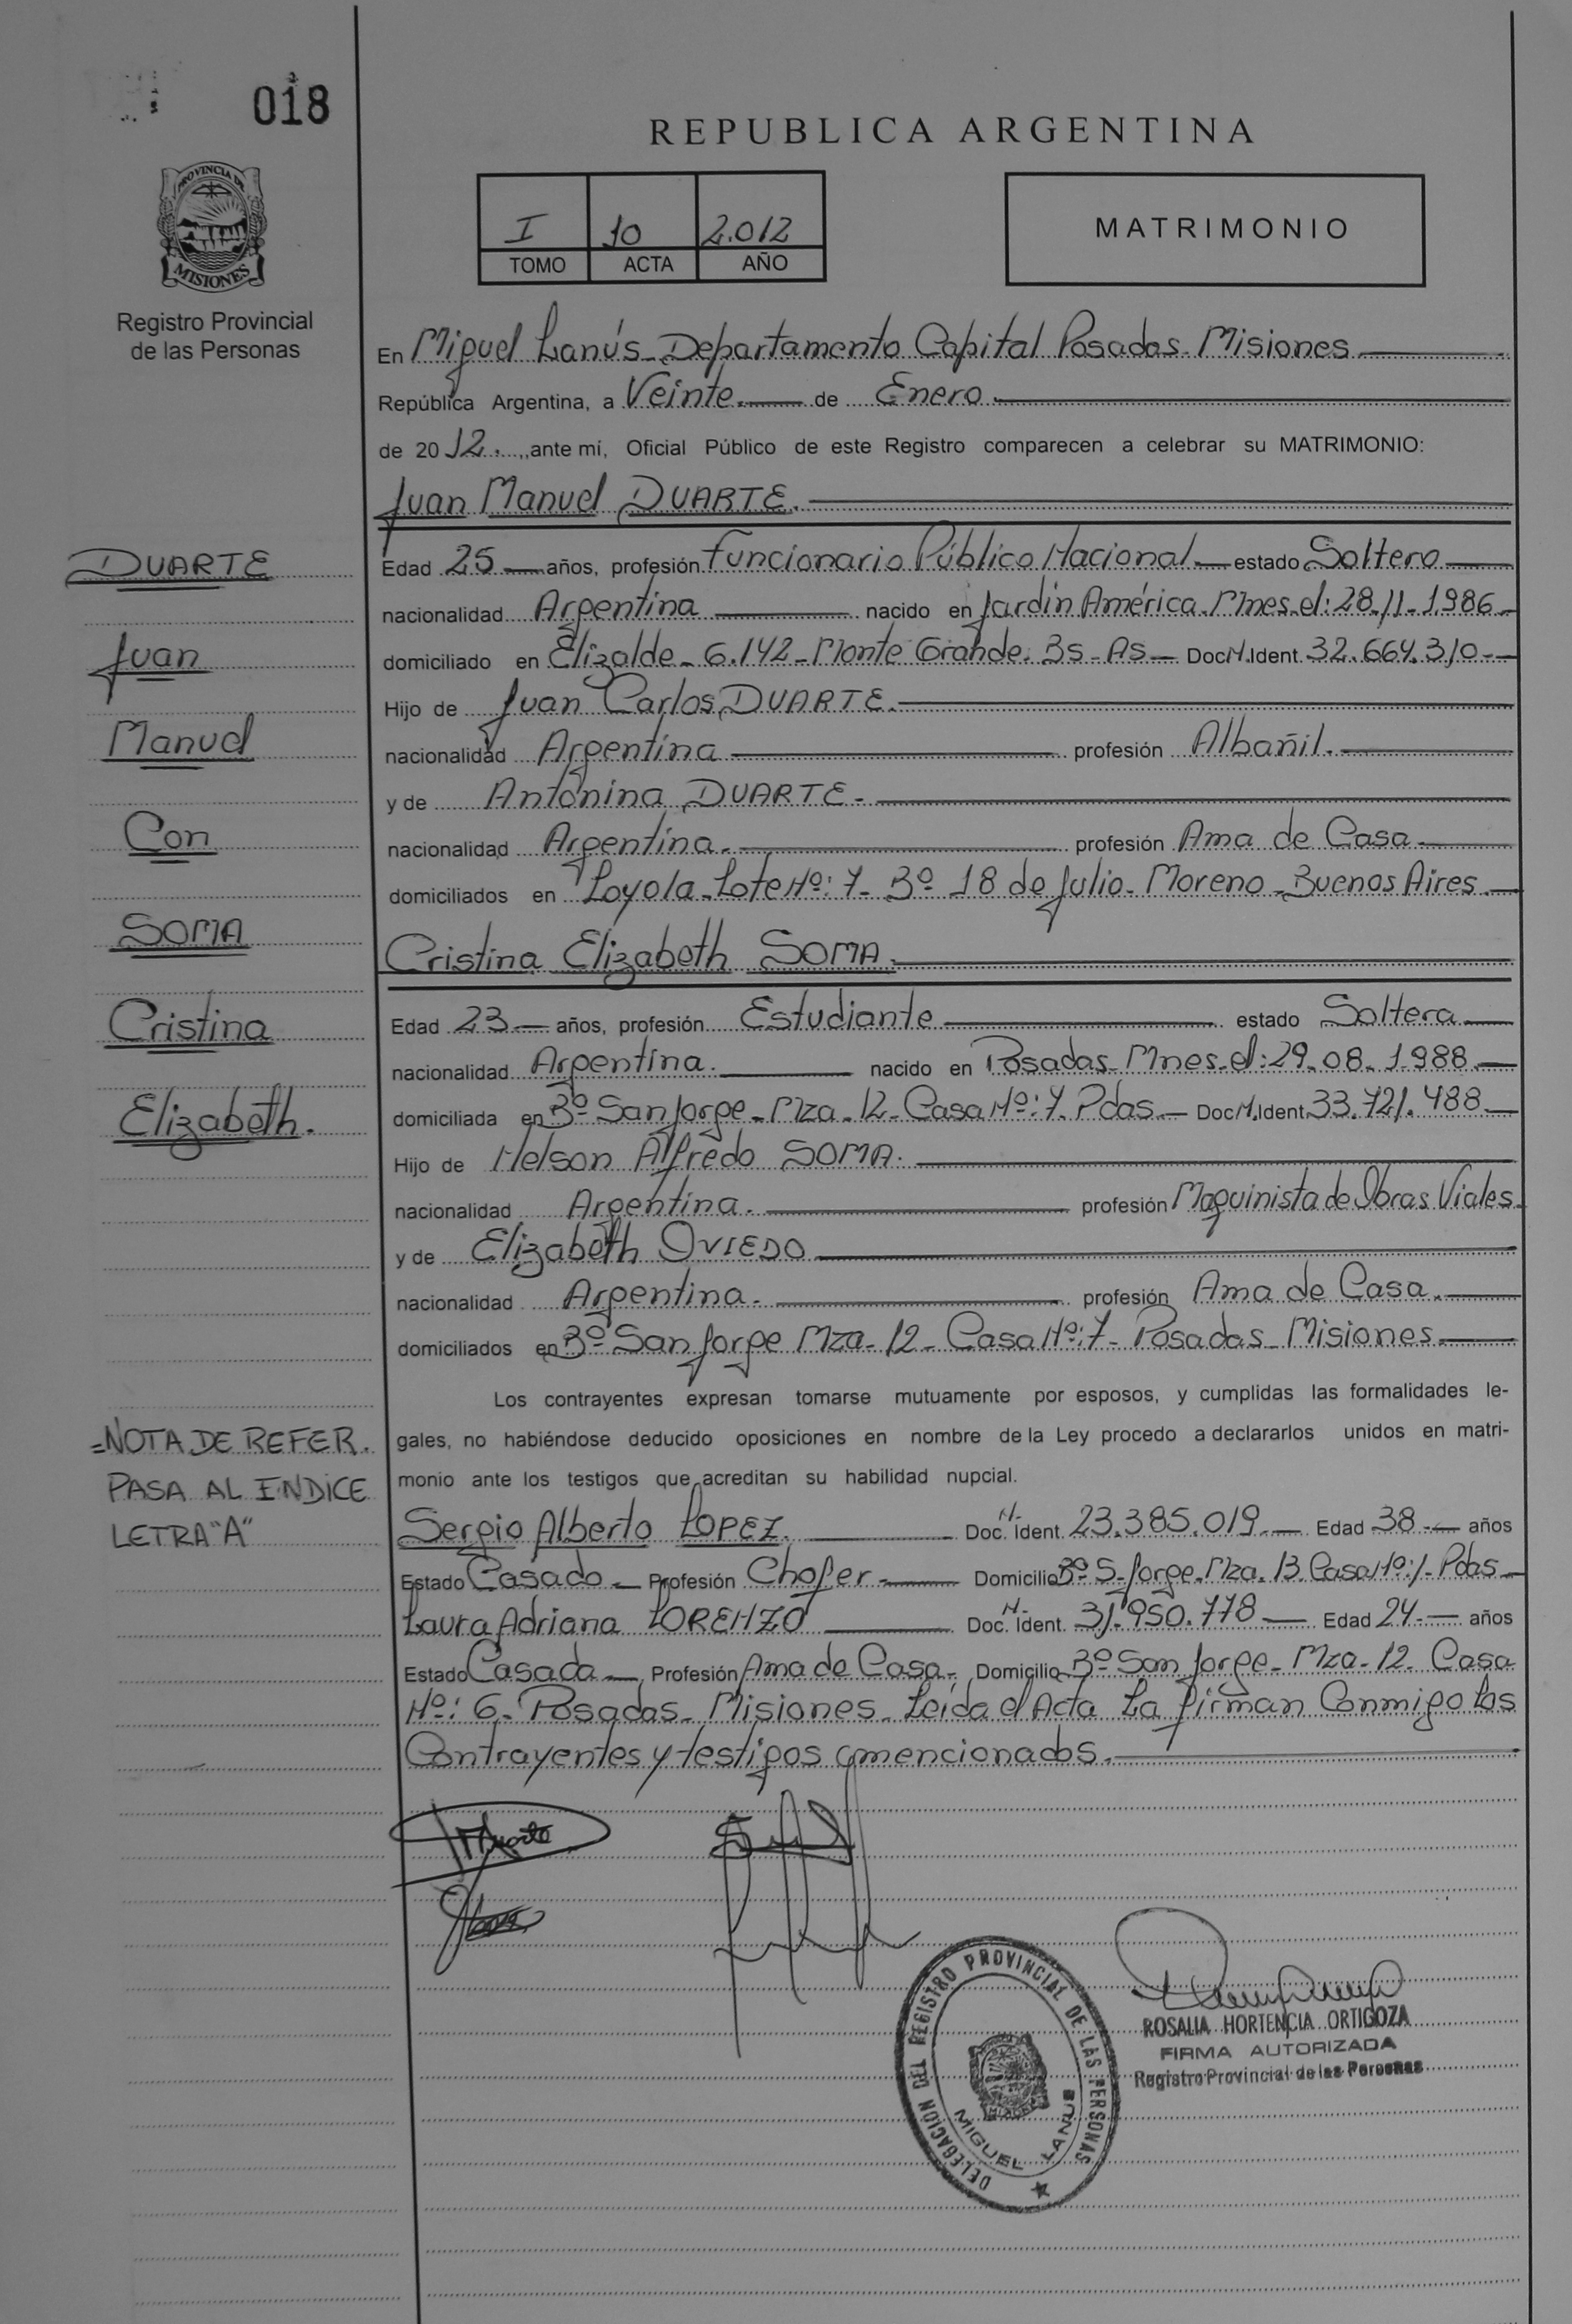 018
REPUBLICA ARGENTINA
PROVINCIA DE
MISIONES
Registro Provincial
de las Personas
I 10 2.012
TOMO ACTA AÑO
MATRIMONIO
En Miguel Lanús - Departamento Capital Posadas - Misiones
República Argentina, a Veinte. de Enero
de 2012. ,,ante mí, Oficial Público de este Registro comparecen a celebrar su MATRIMONIO:
Juan Manuel DUARTE.
Edad 25 años, profesión Funcionario Público Nacional estado Soltero
nacionalidad Argentina nacido en Jardín América. Mnes. el: 28-11-1986
domiciliado en Elizalde - 6.142 - Monte Grande. Bs - As Doc.N.Ident. 32.664.310-
Hijo de Juan Carlos DUARTE.
nacionalidad Argentina profesión Albañil.
y de Antonina DUARTE-
nacionalidad Argentina. profesión Ama de Casa
domiciliados en Loyola - Lote Nº: 7 - Bº 18 de Julio - Moreno - Buenos Aires
Cristina Elizabeth SOMA.
Edad 23 años, profesión Estudiante estado Soltera
nacionalidad Argentina. nacido en Posadas - Mnes. el: 29-08-1988
domiciliada en Bº San Jorge - Mza - 12 - Casa Nº: 7. Pdas Doc.N.Ident. 33.721.488
Hijo de Nelson Alfredo SOMA.
nacionalidad Argentina. profesión Maquinista de Obras Viales
y de Elizabeth OVIEDO
nacionalidad Argentina. profesión Ama de Casa.
domiciliados en Bº San Jorge Mza - 12 - Casa Nº: 7 - Posadas - Misiones
Los contrayentes expresan tomarse mutuamente por esposos, y cumplidas las formalidades le-
gales, no habiéndose deducido oposiciones en nombre de la Ley procedo a declararlos unidos en matri-
monio ante los testigos que acreditan su habilidad nupcial.
Sergio Alberto LOPEZ. Doc. N. Ident. 23.385.019 Edad 38 años
Estado Casado Profesión Chofer Domicilio Bº S. Jorge - Mza. 13 Casa Nº: 1 - Pdas
Laura Adriana LORENZO Doc. N. Ident. 31.950.778 Edad 24 años
Estado Casada Profesión Ama de Casa - Domicilio Bº San Jorge - Mza - 12 - Casa
Nº: 6 - Posadas - Misiones - Leída el Acta La firman Conmigo Los
Contrayentes y testigos mencionados.
DUARTE
Juan
Manuel
Con
SOMA
Cristina
Elizabeth.
=NOTA DE REFER.
PASA AL INDICE
LETRA "A"
DELEGACION DEL REGISTRO PROVINCIAL DE LAS PERSONAS
MIGUEL LANUS
ROSALIA HORTENCIA ORTIGOZA
FIRMA AUTORIZADA
Registro Provincial de las Personas